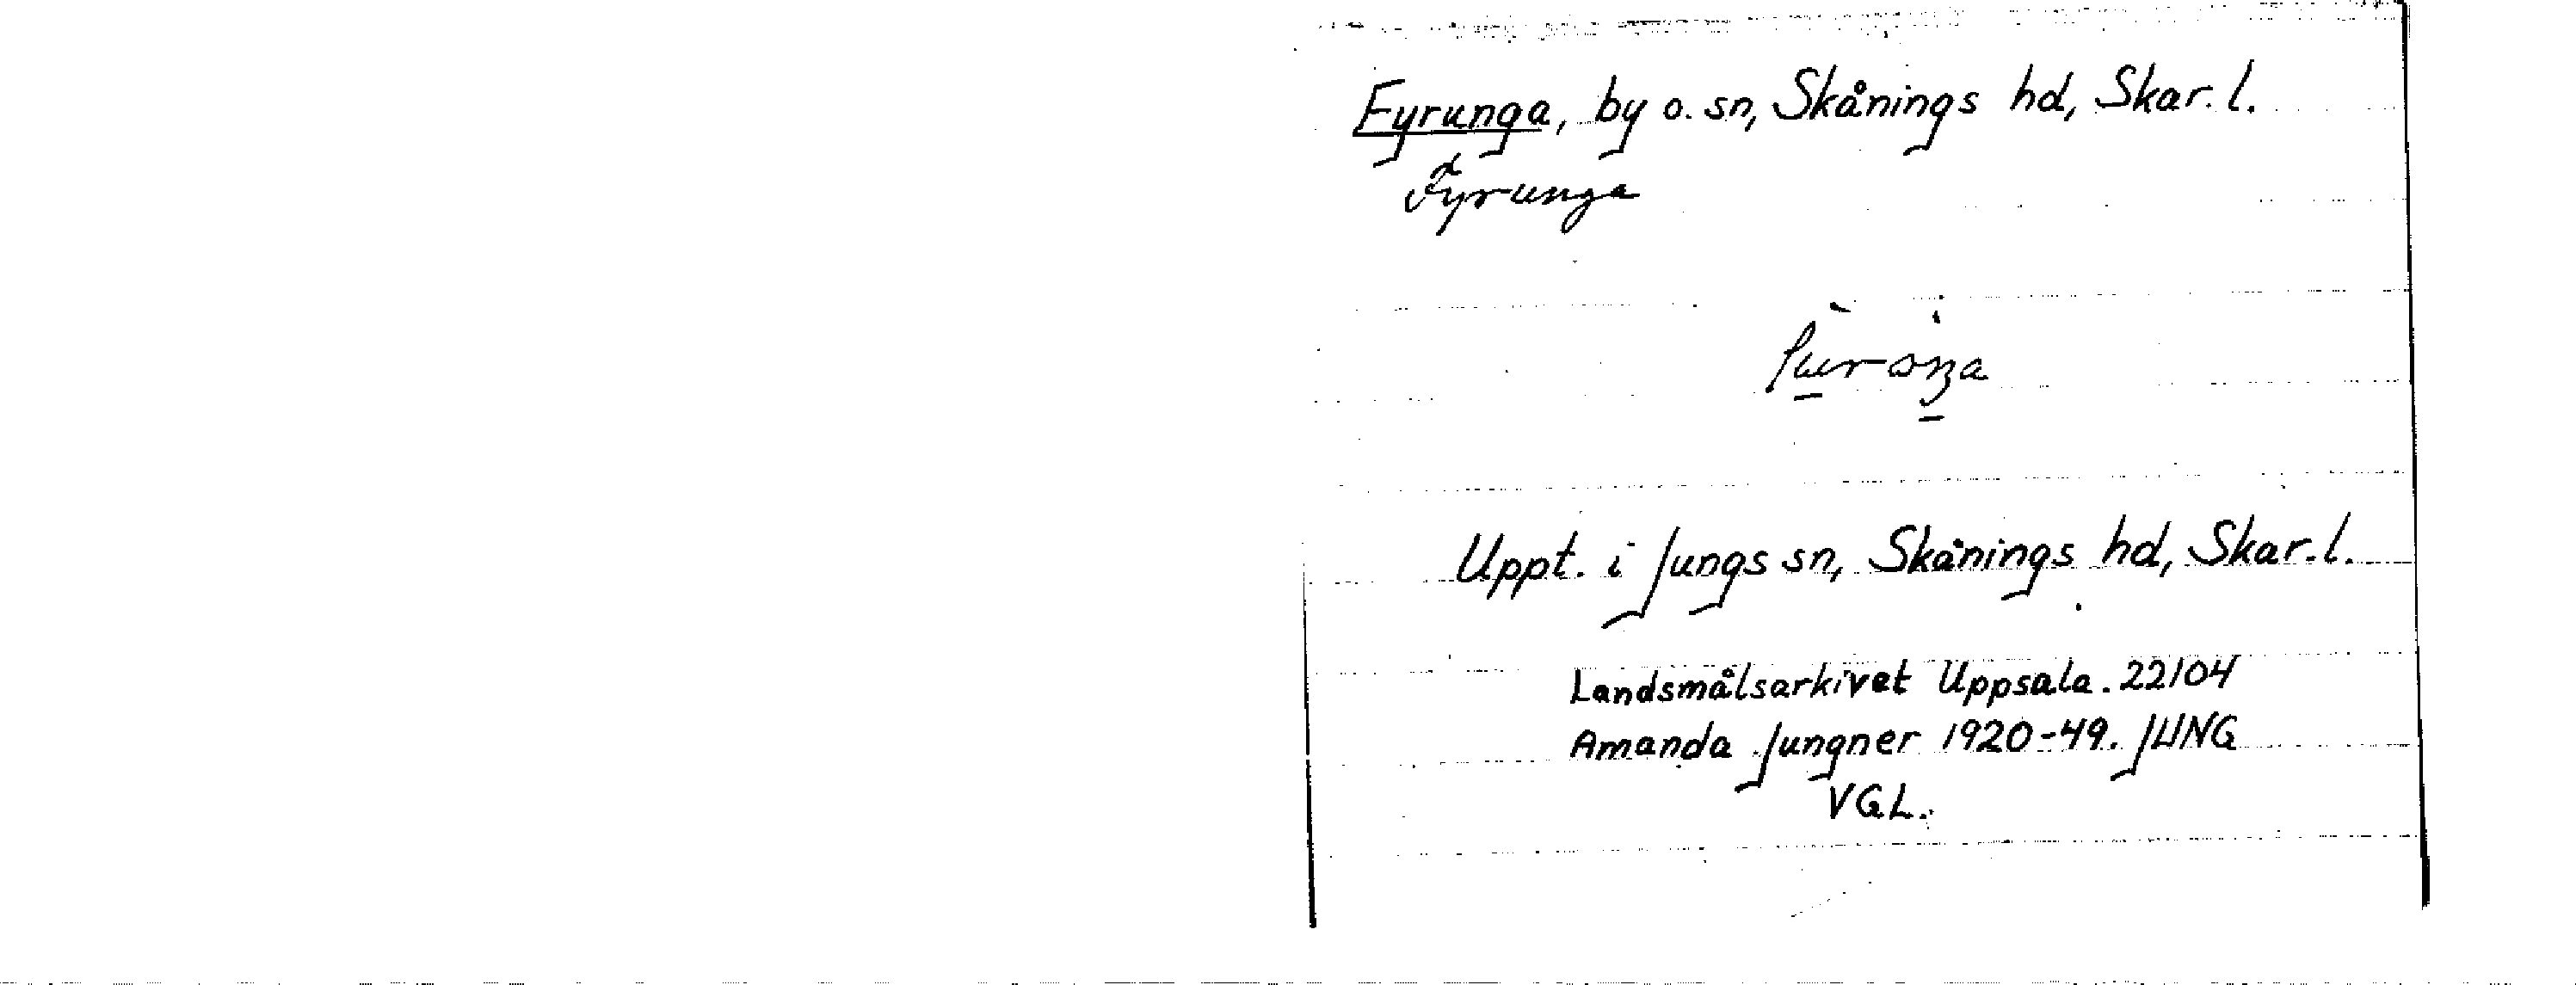 Fyrunga, by o. sn, Skånings hd, Skar. l.
Fyrunga
Uppt. i Jungs sn, Skånings hd, Skar. l.
Landsmålsarkivet Uppsala. 22104
Amanda Jungner 1920-49. JUNG
VGL.